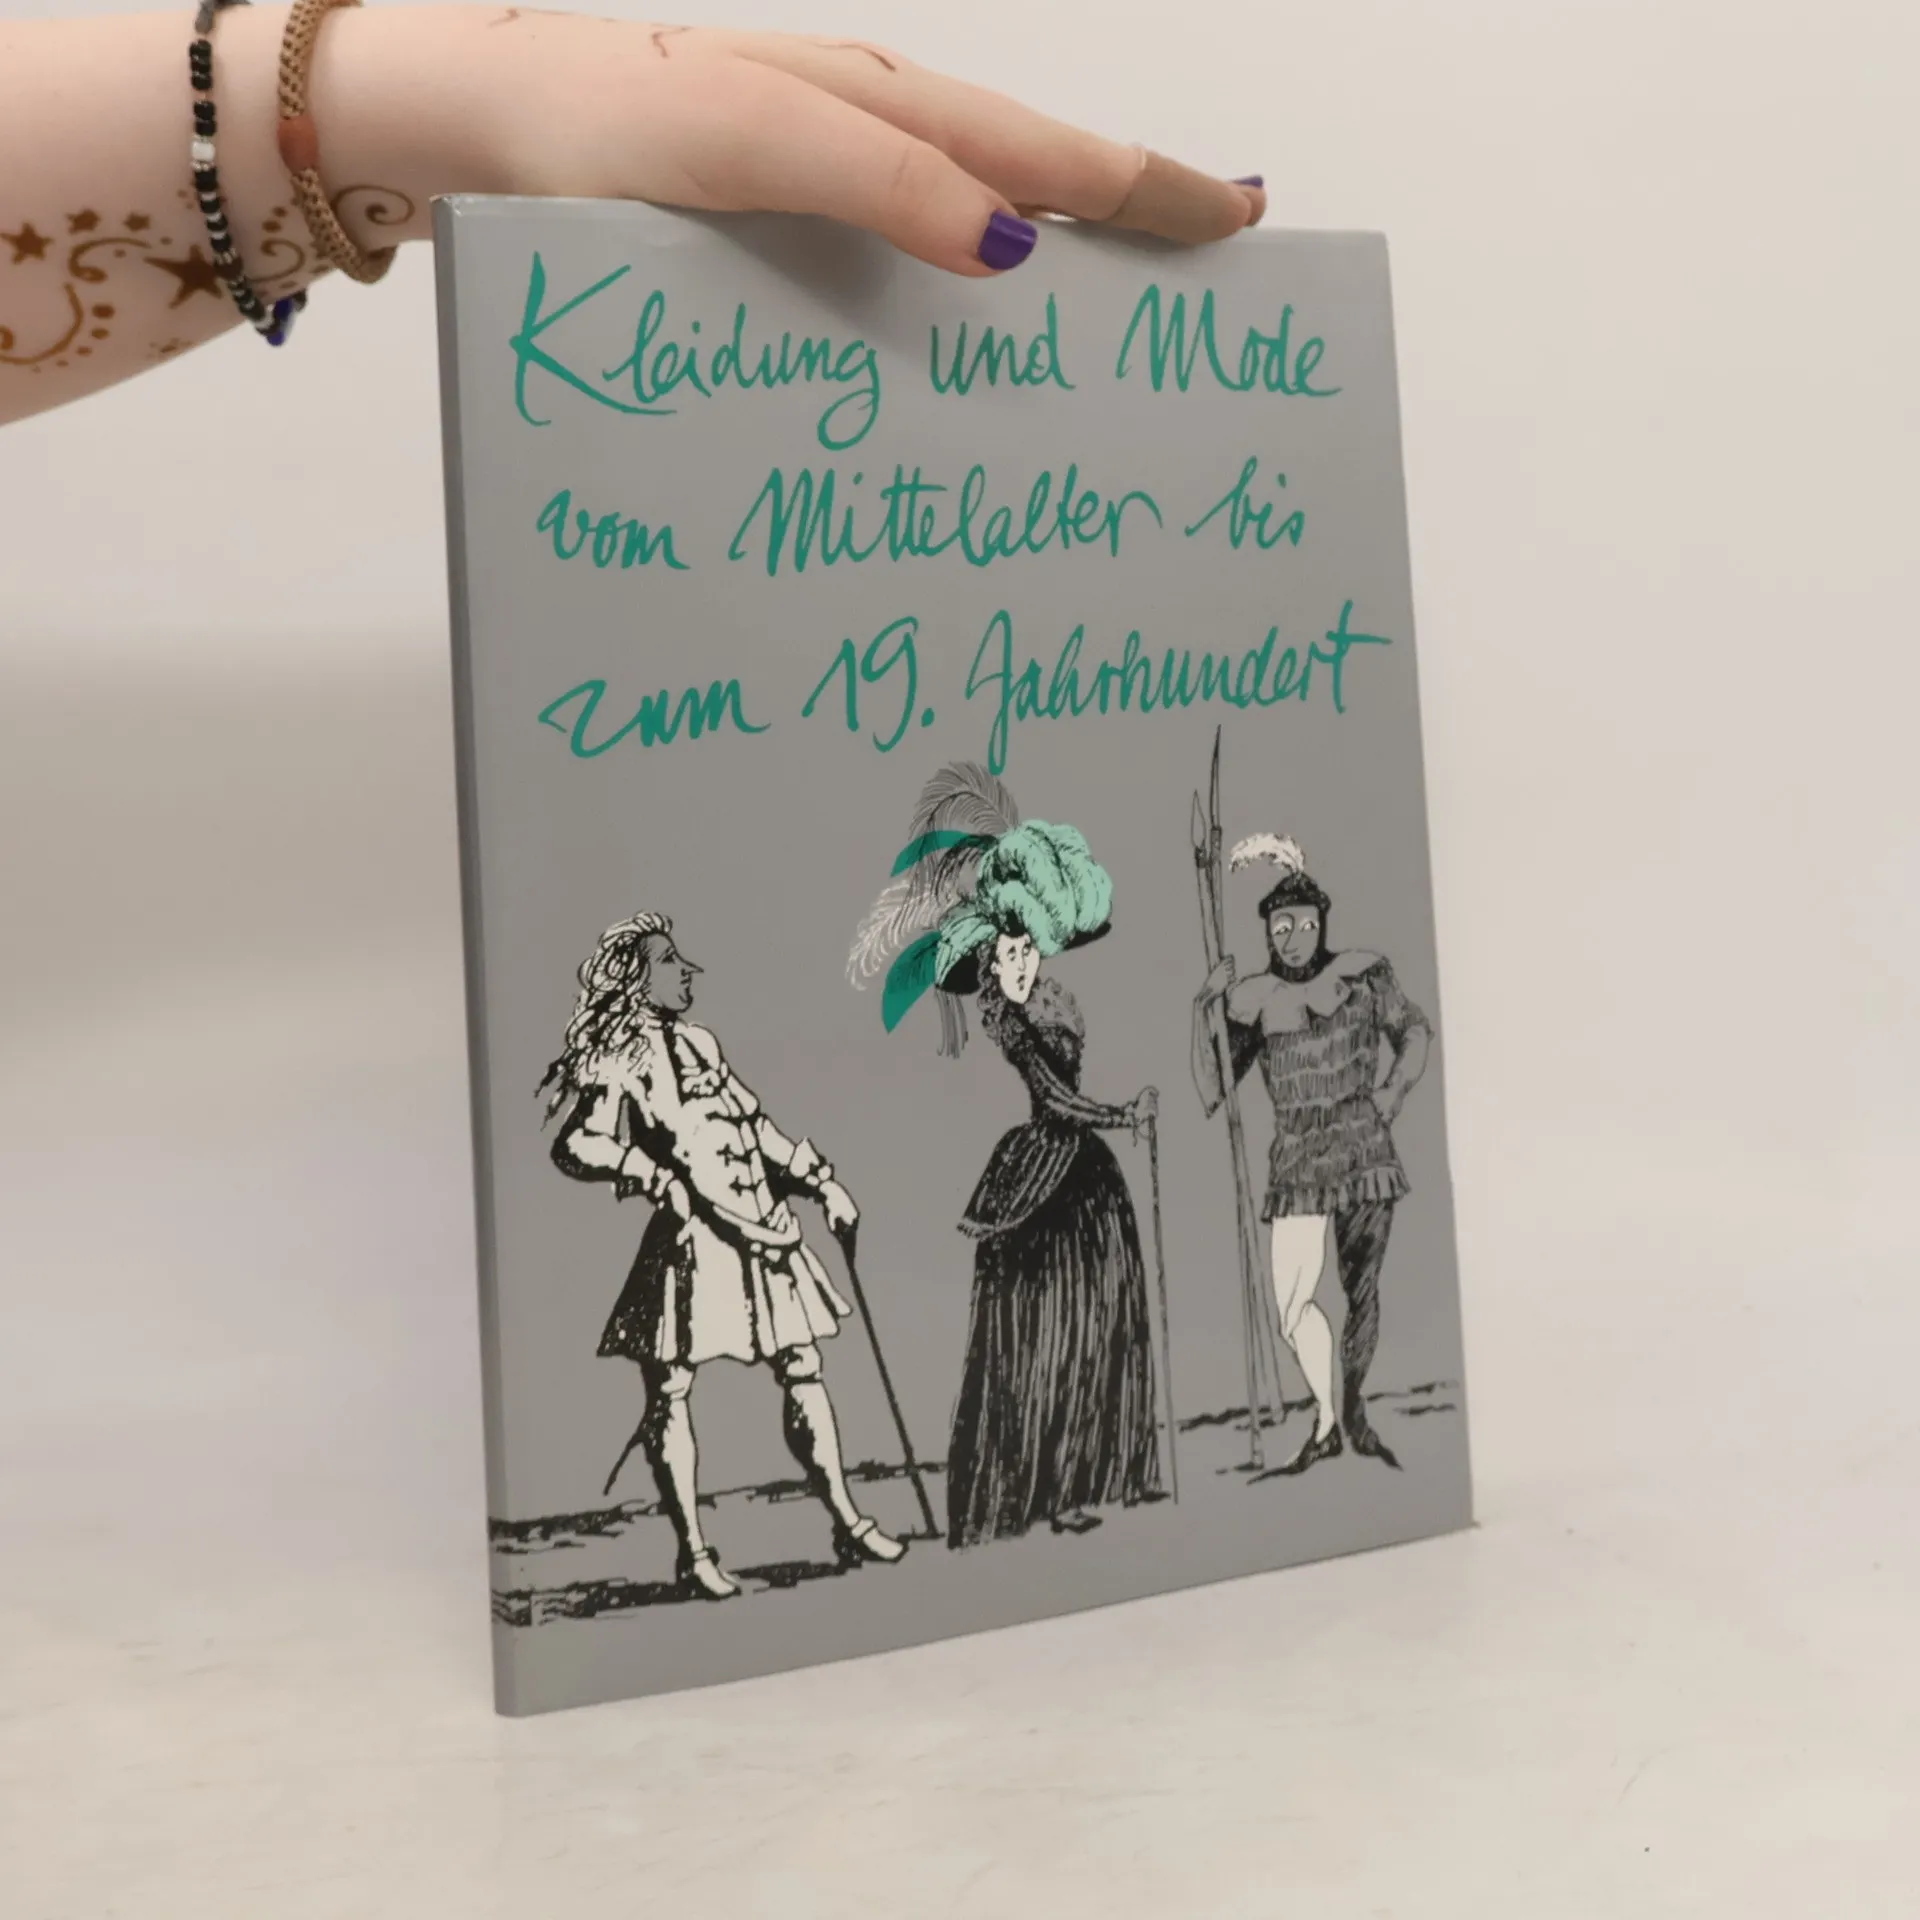 Kleidung und Mode
vom Mittelalter bis
zum 19. Jahrhundert